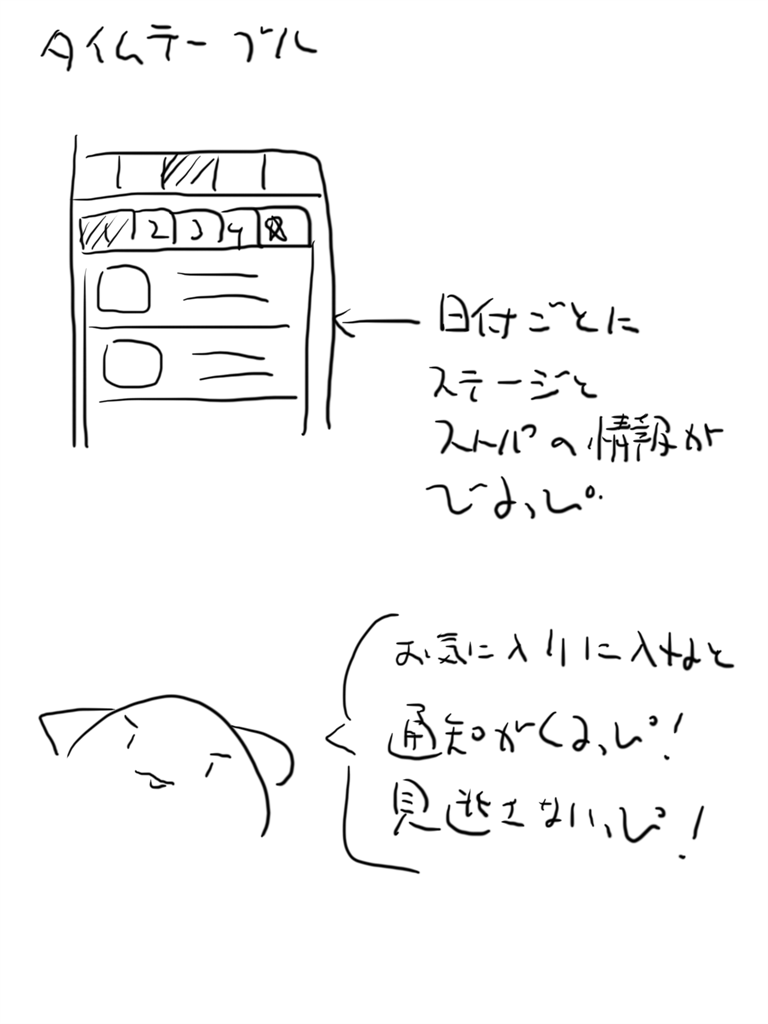 タイムテーブル
2 3 4
日付ごとに
ステージと
ストパの情報が
でるっぴ。
お気に入りに入れると
通知がくるっぴ！
見逃さないっぴ！